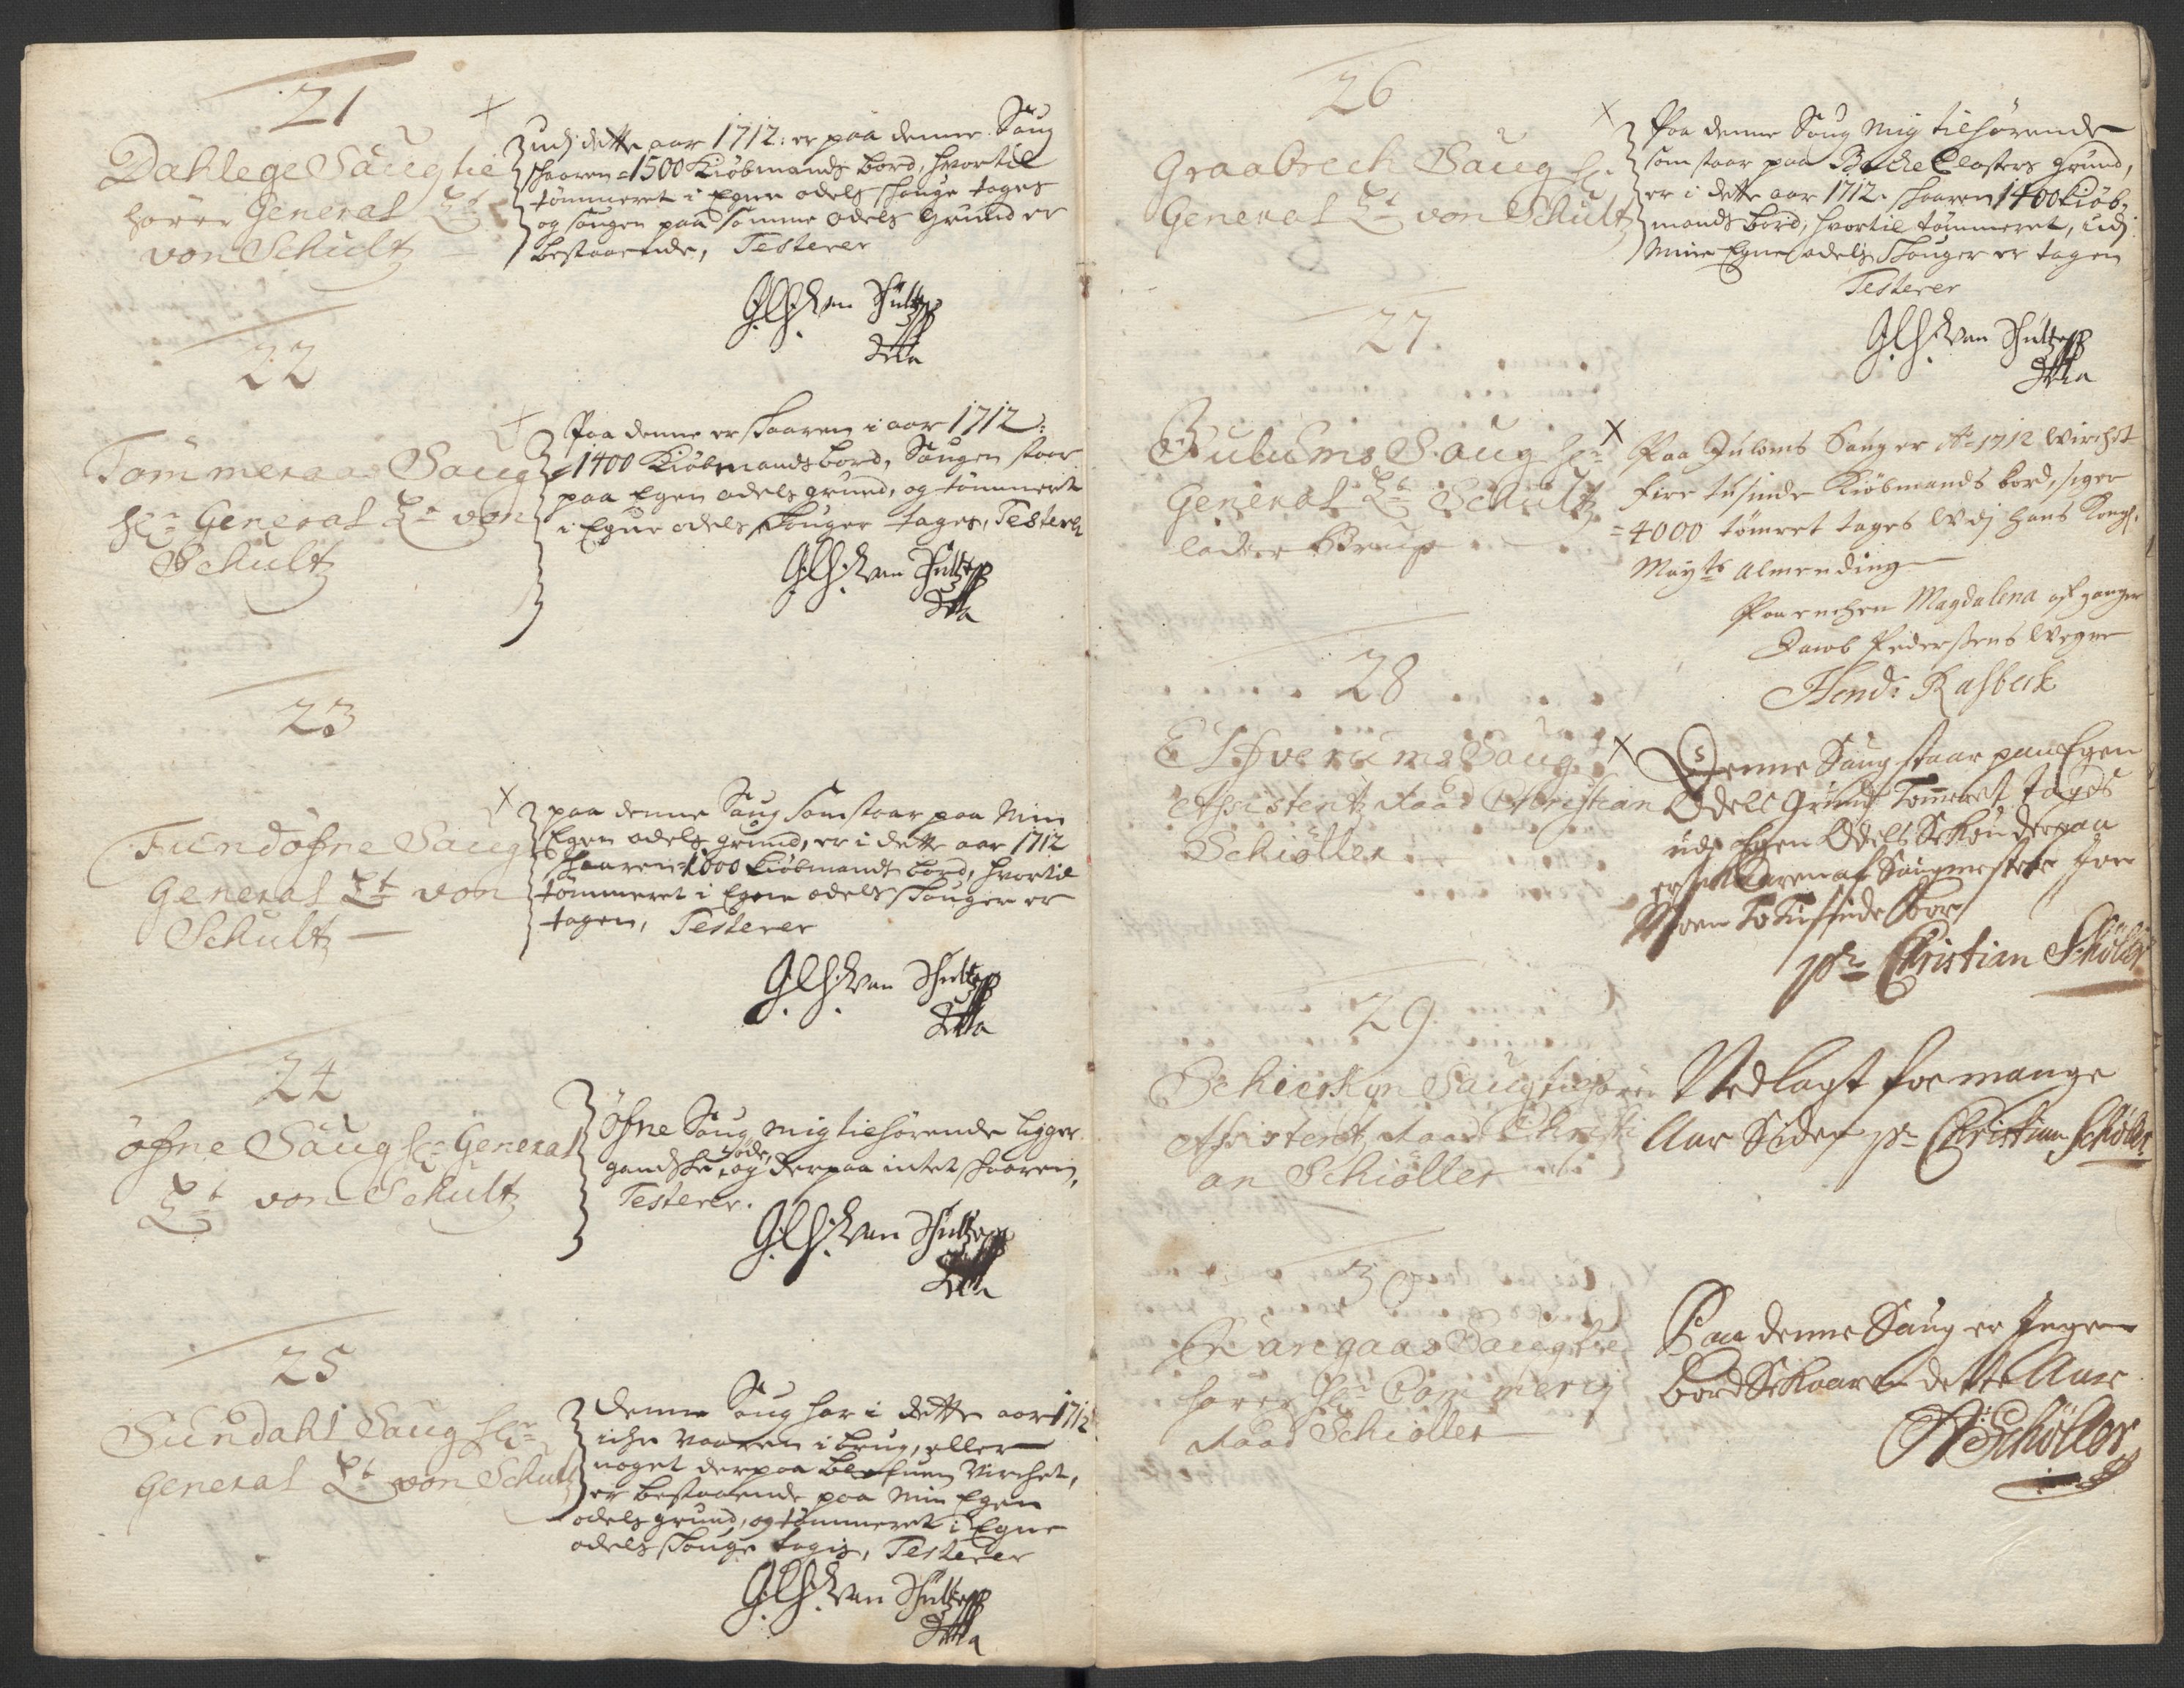 21
Dahlege Saug til
hører General Lt
von Schultz
udj dette aar 1712: er paa denne Saug
skaaren =1500 Kiøbmands bord, hvortil
tømmeret i Egne odels skouge tages
og saugen paa samme odels grund er
bestaaende, Testerer
von Schultz
22
Tømmeraas Saug
Hr General Lt von
Schultz
Paa denne er skaaren i aar 1712:
=1400 Kiøbmandsbord, Saugen staar
paa Egen odels grund, og tømmeret
i Egne odels skouger tages, Testerer
von Schultz
23
Fundøfne Saug
General Lt von
Schultz
paa denne Saug som staar paa Min
Egen odels grund, er i dette aar 1712
skaaren =1000 Kiøbmands bord, hvortil
tømmeret i Egne odels skouger er
tagen, Testerer
von Schultz
24
Øfne Saug Hr General
Lt von Schultz
Øfne Saug mig tilhørende ligger
gandske øde, og derpaa intet skaaren,
Testerer.
von Schultz
25
Sundahl Saug Hr
General Lt von Schultz
denne Saug har i dette aar 1712
iche vaaren i brug, eller
noget derpaa blefuen Virchet,
er bestaaende paa Min Egen
odels grund, og tømmeret i Egne
odels skouge tagis, Testerer
von Schultz
26
Graabrech Saug Hr
General Lt von Schultz
Paa denne Saug mig tilhørende
som staar paa Bache Closters grund,
er i dette aar 1712. skaaren 1400 Kiøb-
mands bord, hvortil tømmeret, udj
Mine Egne odels Skouger er tagen
Testerer
von Schultz
27
Julums Saug Hr
General Lt Schultz
lader Brug
Paa Julums Saug er Ao 1712 Wirchet
fire tusinde Kiøbmands bord, siger
=4000 tømret tages Udj Hans Kongl.
Mayts Almending
Paa enchen Magdalena afganger
Jacob Pedersens Wegne
Hend: Kasbeck
28
Elfverums Saug
Assistentz Raad Christian
Schiøller
Denne Saug staar paa Egen
Odels Grund Tømeret tages
udj Egen Odels Skou derpaa
er skaaren af Saugmester Joen
Moen To Tusinde bor
pr Christian Schøller
29.
Schierkyn Saug tilhører
Assistentz Raad Christi
an Schiøller
Nedlagt for mange
Aar Siden pr Christian Schøller
30
Quregaas Saug til
hører Hr Commercij
Raad Schiøller
Paa denne Saug er Ingen
bord Skaaren dette Aar
Schøller